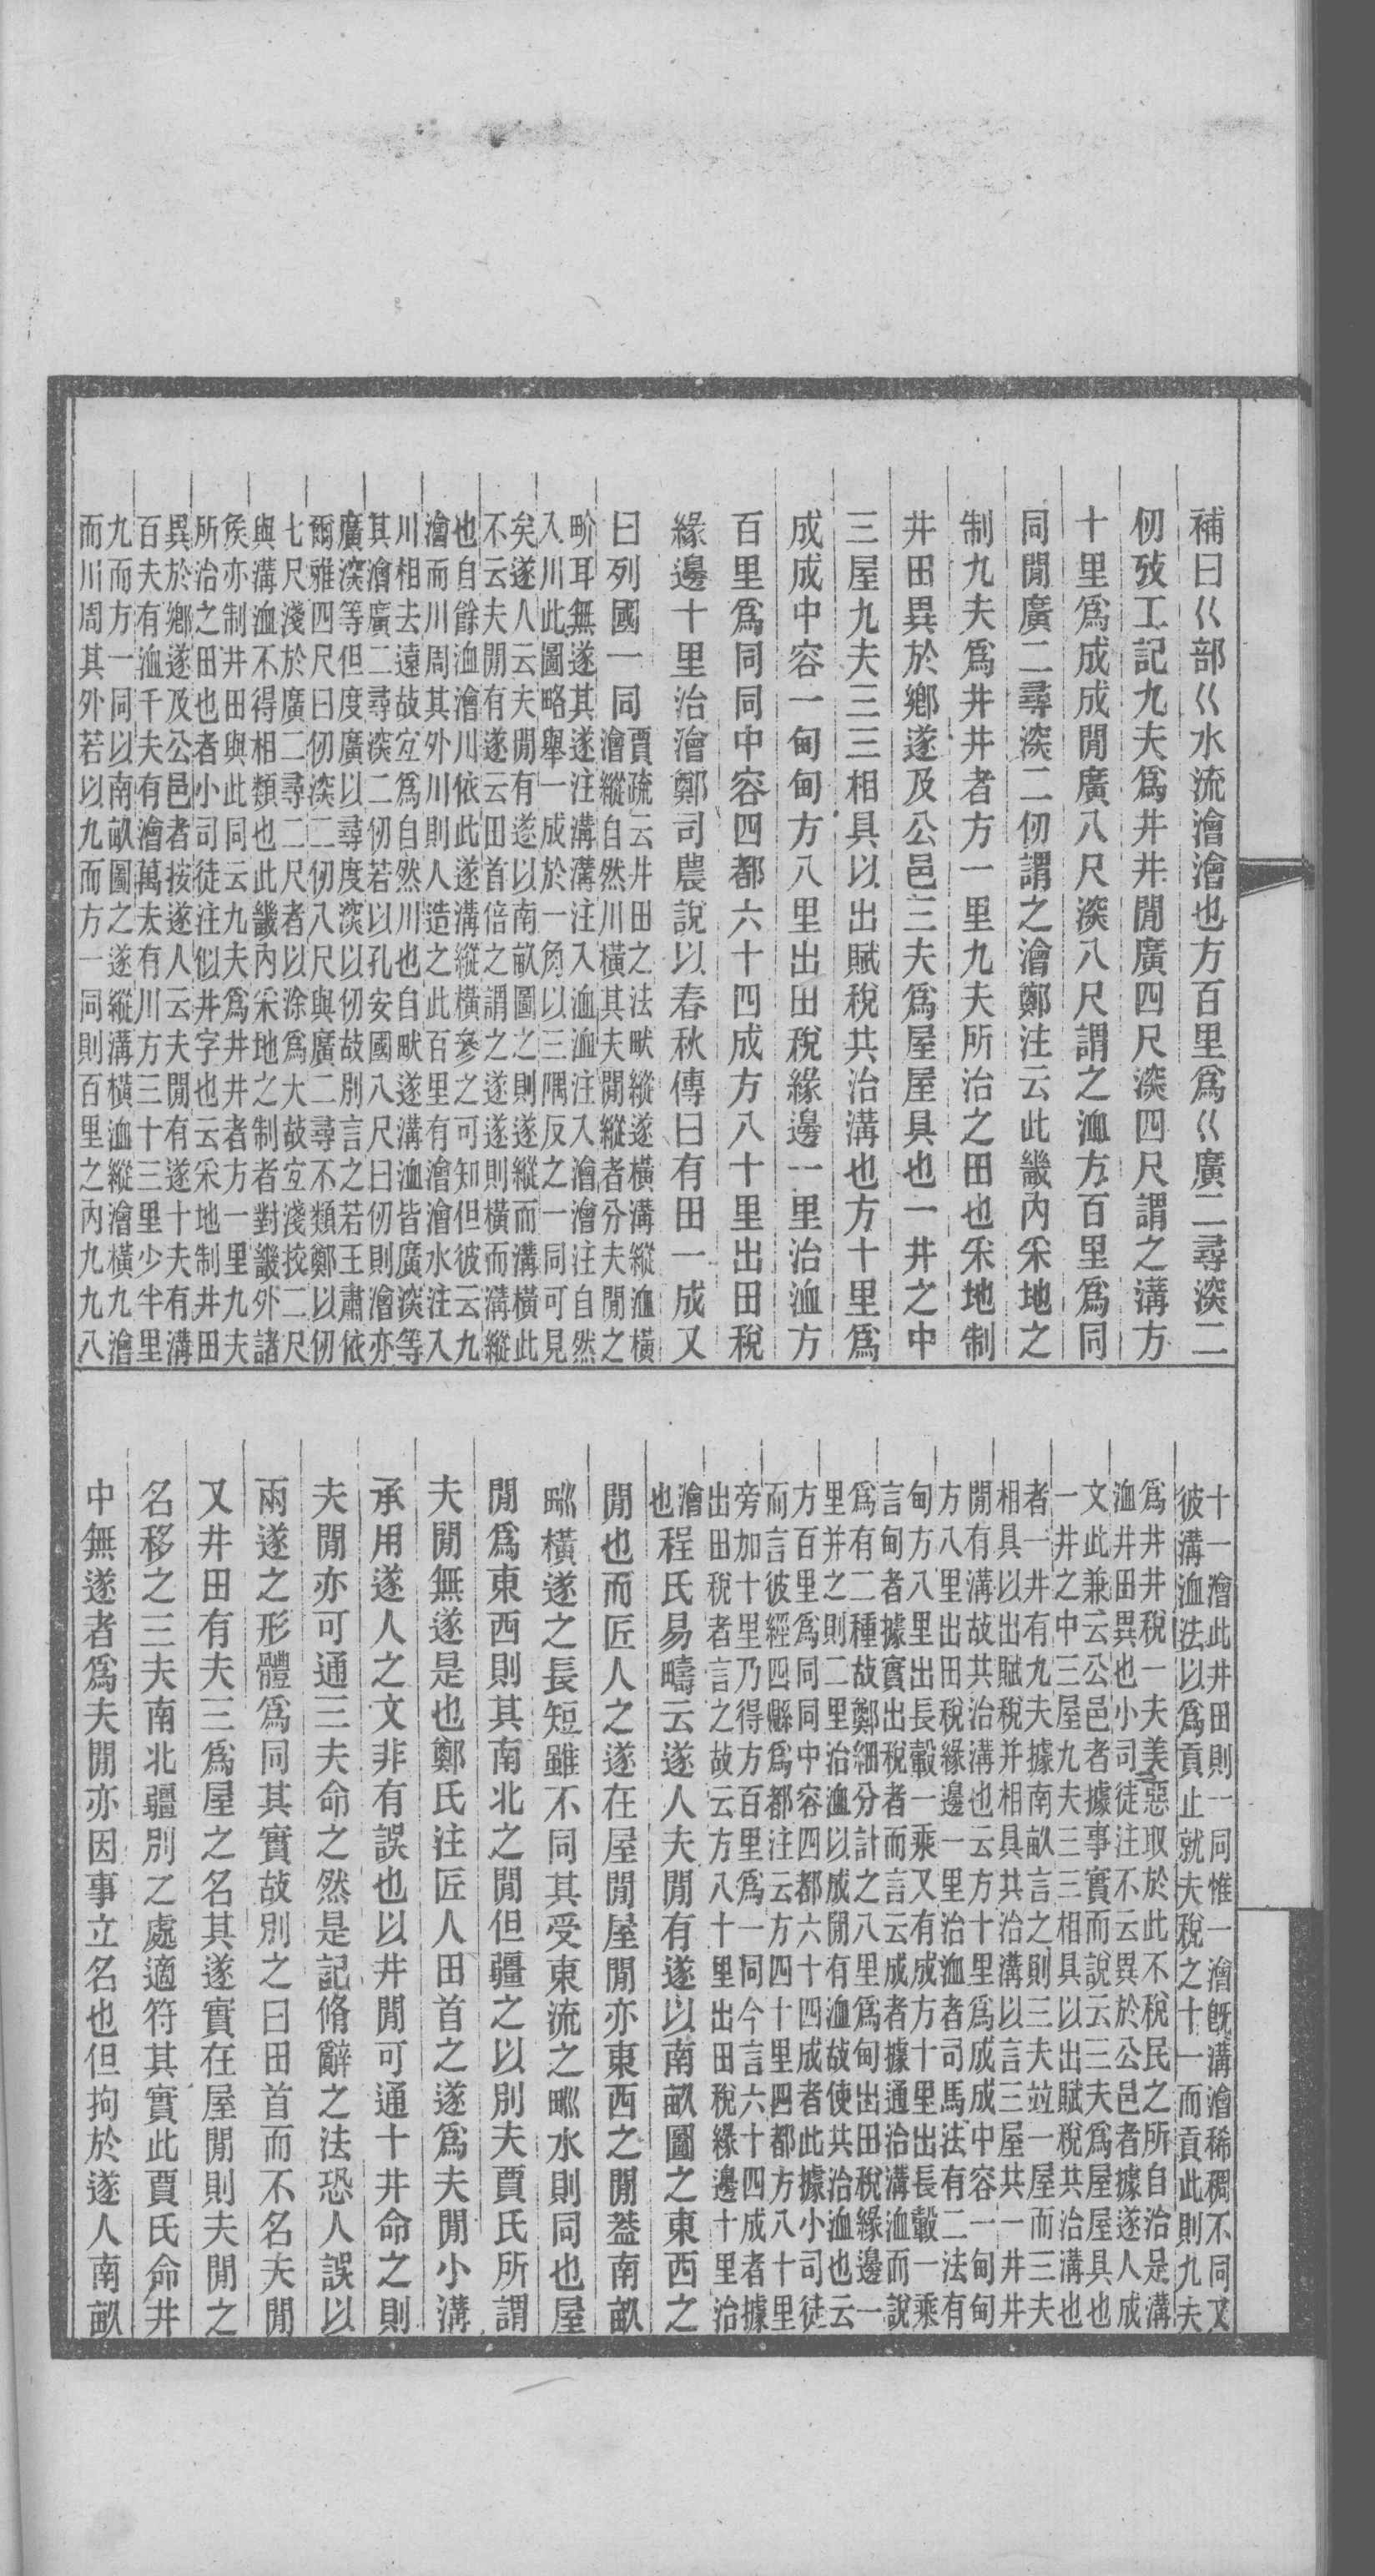 補曰巜部巜水流澮澮也方百里爲巜廣二尋深二
仞攷工記九夫爲井井閒廣四尺深四尺謂之溝方
十里爲成成閒廣八尺深八尺謂之洫方百里爲同
同閒廣二尋深二仞謂之澮鄭注云此畿内采地之
制九夫爲井井者方一里九夫所治之田也采地制
井田異於鄉遂及公邑三夫爲屋屋具也一井之中
三屋九夫三三相具以出賦稅共治溝也方十里爲
成成中容一甸甸方八里出田稅緣邊一里治洫方
百里爲同同中容四都六十四成方八十里出田稅
緣邊十里治澮鄭司農說以春秋傳曰有田一成又
曰列國一同賈疏云井田之法畎縱遂橫溝縱洫橫
澮縱自然川橫其夫閒縱者分夫閒之
畍耳無遂其遂注溝溝注入洫洫注入澮澮注自然
入川此圖略舉一成於一角以三隅反之一同可見
矣遂人云夫閒有遂以南畝圖之則遂縱而溝橫此
不云夫閒有遂云田首倍之謂之遂遂則橫而溝縱
也自餘洫澮川依此遂溝縱橫參之可知但彼云九
澮而川周其外川則人造之此百里有澮澮水注入
川相去遠故宐爲自然川也自畎遂溝洫皆廣深等
其澮廣二尋深二仞若以孔安國八尺曰仞則澮亦
廣深等但度廣以尋度深以仞故別言之若王肅依
爾雅四尺曰仞深二仞八尺與廣二尋不類鄭以仞
七尺淺於廣二尋二尺者以涂爲大故宐淺挍二尺
與溝洫不得相類也此畿內采地之制者對畿外諸
矦亦制井田與此同云九夫爲井井者方一里九夫
所治之田也者小司徒注似井字也云采地制井田
異於鄉遂及公邑者按遂人云夫閒有遂十夫有溝
百夫有洫千夫有澮萬夫有川方三十三里少半里
九而方一同以南畝圖之遂縱溝橫洫縱澮橫九澮
而川周其外若以九而方一同則百里之內九九八
十一澮此井田則一同惟一澮旣溝澮稀稠不同又
彼溝洫法以爲貢止就夫稅之十一而貢此則九夫
爲井井稅一夫美惡取於此不稅民之所自治是溝
洫井田異也小司徒注不云異於公邑者據遂人成
文此兼云公邑者據事實而說云三夫爲屋屋具也
一井之中三屋九夫三三相具以出賦稅共治溝也
者一井有九夫據南畝言之則三夫竝一屋而三夫
相具以出賦稅并相具共治溝以言三屋共一井井
閒有溝故共治溝也云方十里爲成成中容一甸甸
方八里出田稅緣邊一里治洫者司馬法有二法有
甸方八里出長轂一乘又有成方十里出長轂一乘
言甸者據實出稅者而言云成者據通治溝洫而說
爲有二種故鄭細分計之八里爲甸出田稅緣邊一
里并之則二里治洫以成閒有洫故使共治洫也云
方百里爲同同中容四都六十四成者此據小司徒
而言彼經四縣爲都注云方四十里四都方八十里
旁加十里乃得方百里爲一同今言六十四成者據
出田稅者言之故云方八十里出田稅緣邊十里治
澮也程氏易疇云遂人夫閒有遂以南畝圖之東西之
閒也而匠人之遂在屋閒屋閒亦東西之閒葢南畝
畖橫遂之長短雖不同其受東流之畖水則同也屋
閒爲東西則其南北之閒但疆之以別夫賈氏所謂
夫閒無遂是也鄭氏注匠人田首之遂爲夫閒小溝
承用遂人之文非有誤也以井閒可通十井命之則
夫閒亦可通三夫命之然是記脩辭之法恐人誤以
兩遂之形體爲同其實故別之曰田首而不名夫閒
又井田有夫三爲屋之名其遂實在屋閒則夫閒之
名移之三夫南北疆別之處適符其實此賈氏命井
中無遂者爲夫閒亦因事立名也但拘於遂人南畝